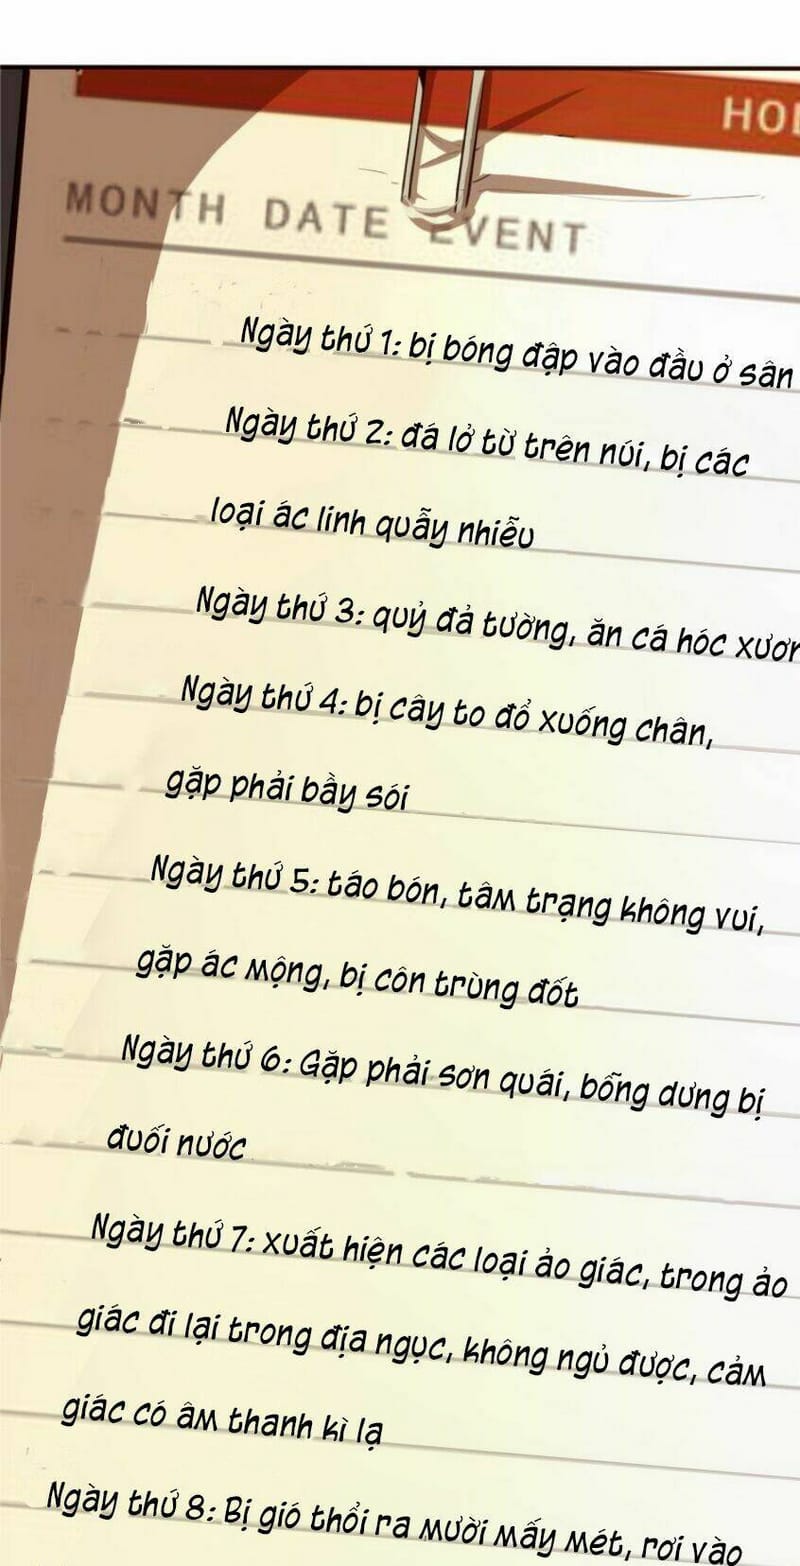 MONTH DATE EVENT
Ngày thứ 1: bị bóng đập vào đầu ở sân
Ngày thứ 2: đá lở từ trên núi, bị các
loại ác linh quẫy nhiễu
Ngày thứ 3: quỷ đả tường, ăn cá hóc
Ngày thứ 4: bị cây to đổ xuống chân,
gặp phải bầy sói
Ngày thứ 5: táo bón, tâm trạng không vui,
gặp ác mộng, bị côn trùng đốt
Ngày thứ 6: Gặp phải sơn quái, bỗng dưng bị
đuối nước
Ngày thứ 7: xuất hiện các loại ảo giác, trong ảo
giác đi lại trong địa ngục, không ngủ được, cảm
giác có âm thanh kì lạ
Ngày thứ 8: Bị gió thổi ra mười mấy mét, rơi vào